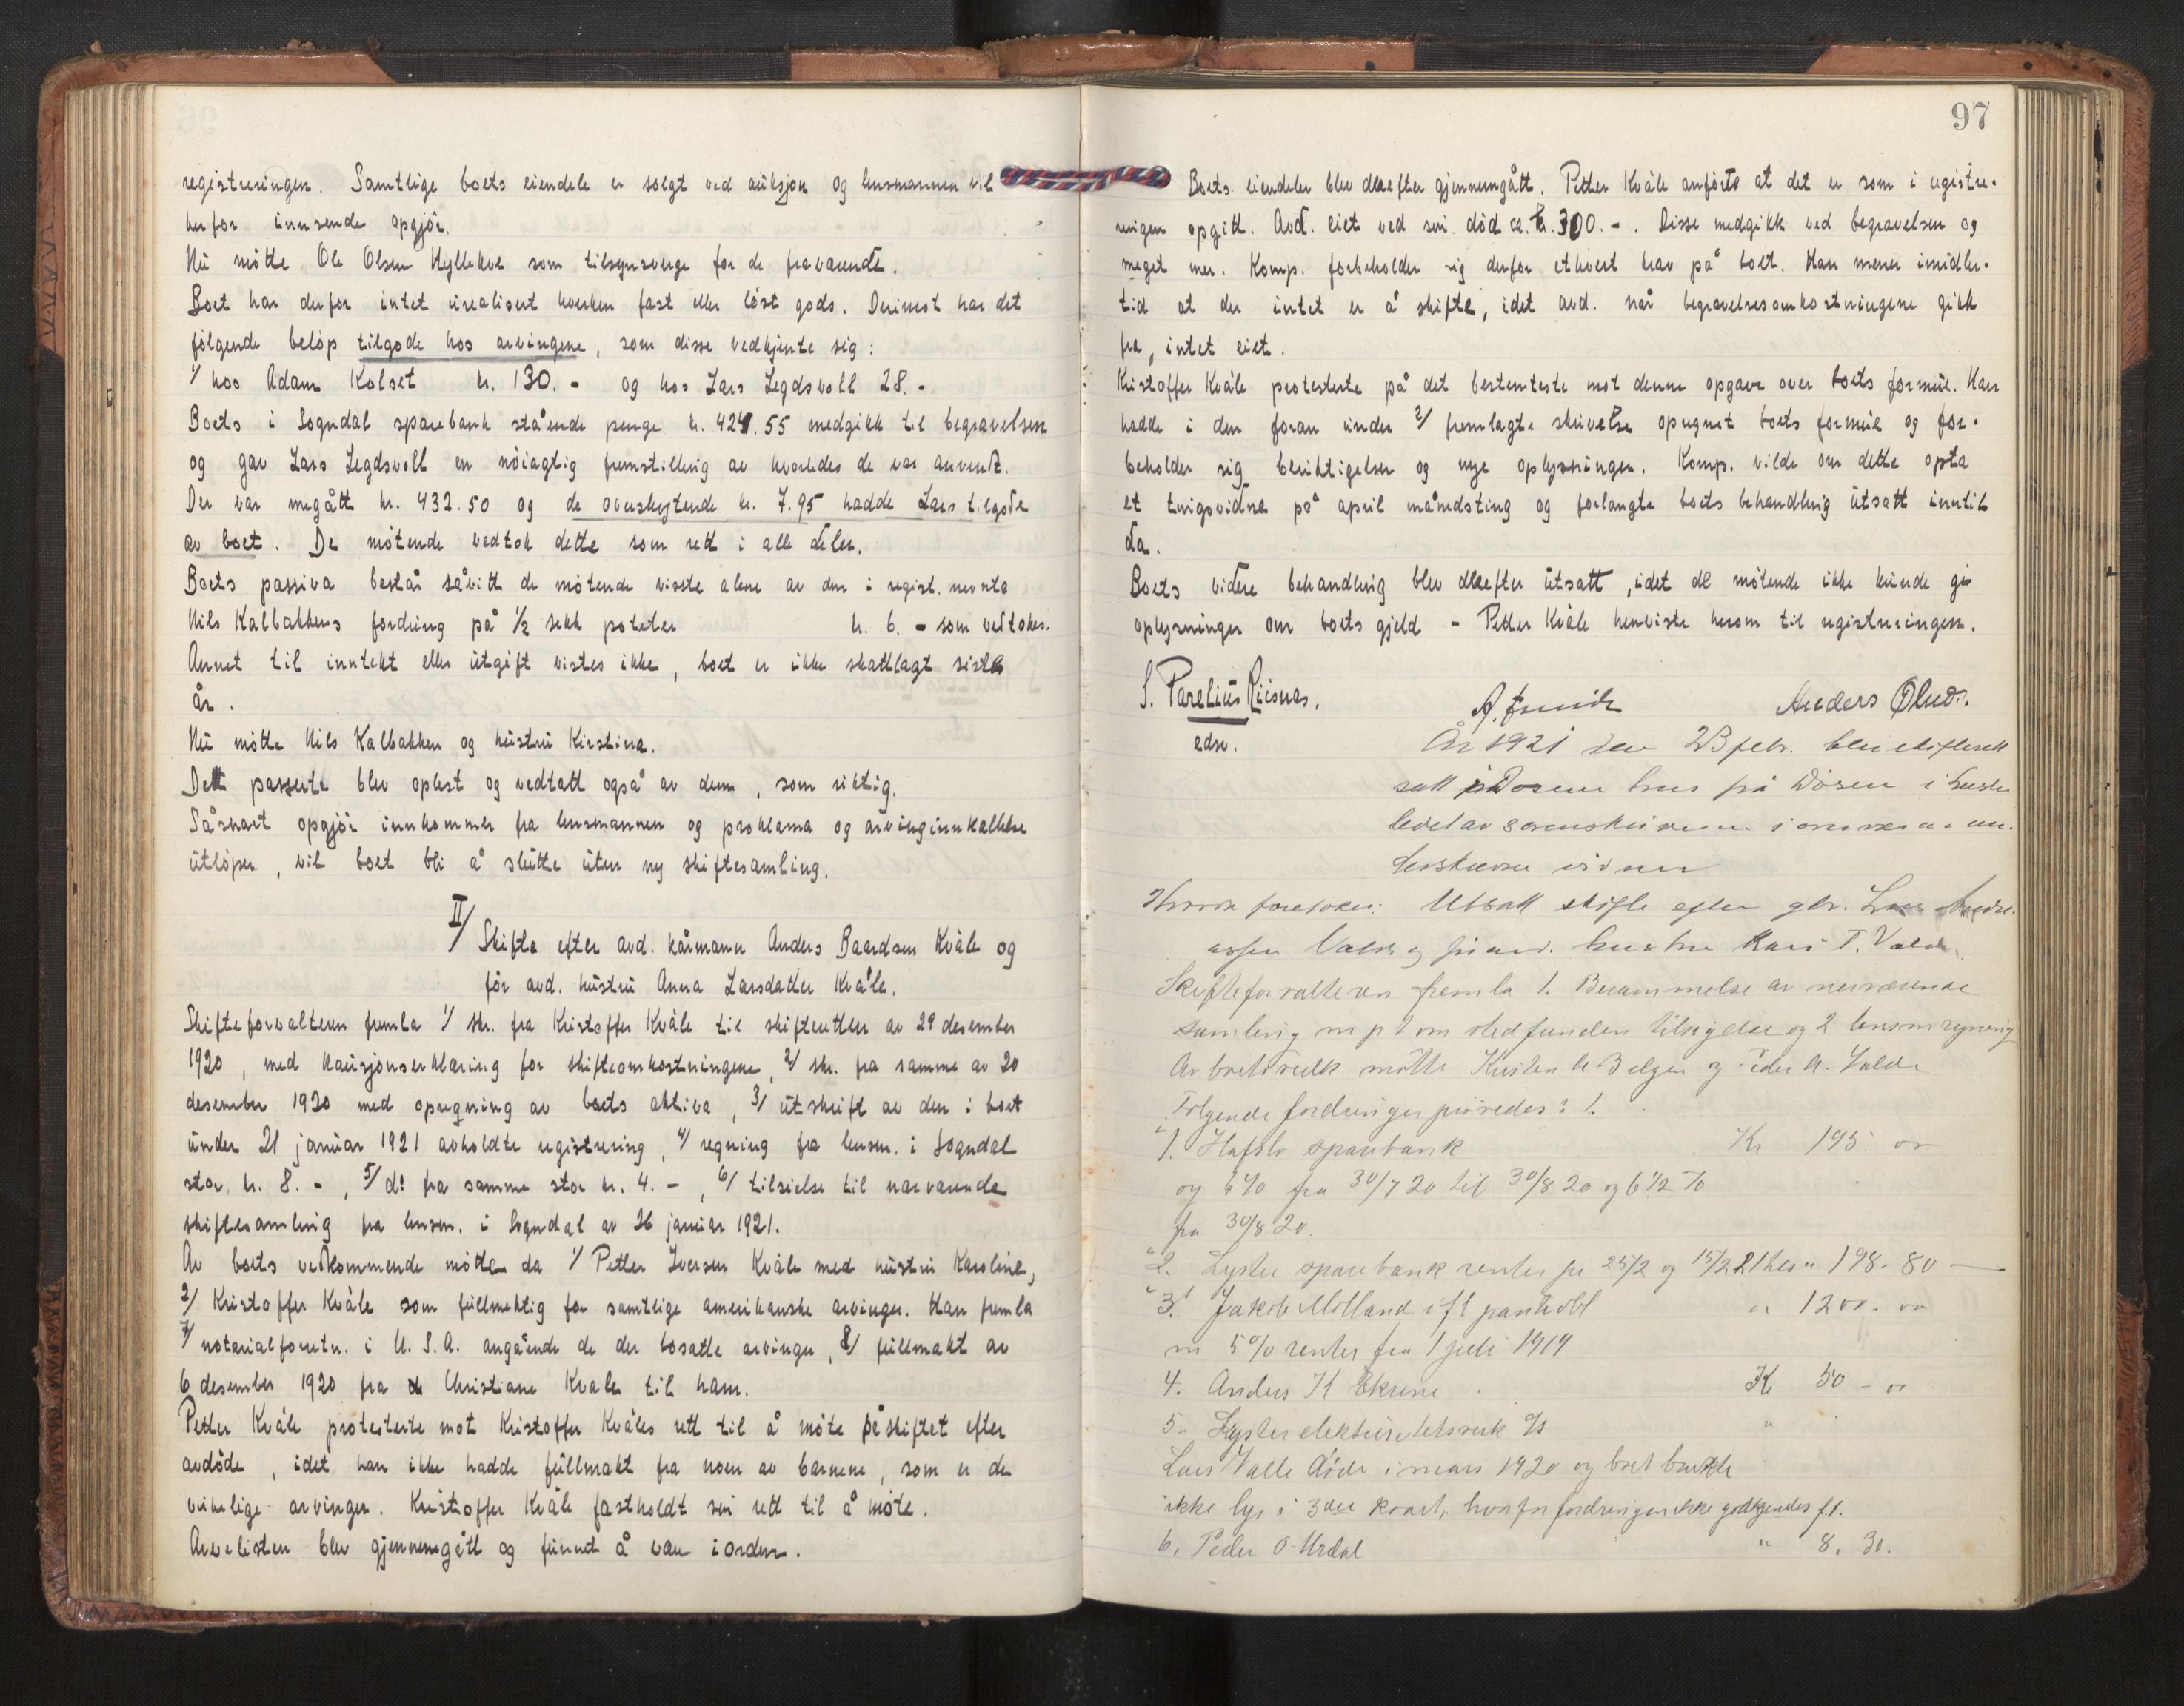 registreringen. Samtlige boets eiendele er solgt ved auksjon og lensmannen vil
herfor innsende opgjör.
Nu mötte Ole Olsen Hyllekve som tilsynsverge for de fraværende.
Boet har derfor intet urealisert hverken fast eller löst gods. Derimot har det
fölgende belöp tilgode hos arvingene, som disse vedkjente sig:
1/ hos Adam Kolset kr. 130.- og hos Lars Legdsvoll 28.-
Boets i Sogndal sparebank stående penge kr. 424.55 medgikk til begravelsen
og gav Lars Legdsvoll en nöiagtig fremstilling av hvorledes de var anvendt.
Der var megått kr. 432.50 og de overskytende kr. 7.95 hadde Lars tilgode
av boet. De mötende vedtok dette som rett i alle deler.
Boets passiva består såvitt de mötende visste alene av den i regist. nevnte
Nils Kalbakkens fordring på 1/2 sekk poteter kr. 6.- som vedtokes.
Annet til inntekt eller utgift vistes ikke, boet er ikke skattlagt siste
år.
Nu mötte Nils Kalbakken og hustru Kirstina.
Dett passerte blev oplest og vedtatt også av dem, som riktig.
Såsnart opgjör innkommer fra lensmannen og proklama og arvinginnkallelse
utlöper, vil boet bli å slutte uten ny skiftesamling.
II/ Skifte efter avd. kårmann Anders Baardsen Kvåle og
för avd. hustru Anna Larsdatter Kvåle.
Skifteforvalteren fremla 1/ skr. fra Kristoffer Kvåle til skifteretten av 29 desember
1920, med kausjonserklæring for skifteomkostningene, 2/ skr. fra samme av 20
desember 1920 med opregning av boets aktiva, 3/ utskrift av den i boet
under 21 januar 1921 avholdte registrering, 4/ regning fra lensm. i Sogndal
stor kr. 8.-, 5/ do fra samme stor kr. 4.-, 6/ tilsielse til nærværende
skiftesamling fra lensm. i Sogndal av 26 januar 1921.
Av boets vedkommende mötte da 1/ Petter Iversen Kvåle med hustru Karoline,
2/ Kristoffer Kvåle som fullmektig for samtlige amerikanske arvinger. Han fremla
7/ notarialforretn. i U.S.A. angående de der bosatte arvinger, 8/ fullmakt av
6 desember 1920 fra Christiane Kvale til ham.
Petter Kvåle protesterte mot Kristoffer Kvåles rett til å möte på skiftet efter
avdöde, idet han ikke hadde fullmakt fra noen av barnene, som er de
virkelige arvinger. Kristoffer Kvåle fastholdt sin rett til å möte.
Arvelisten blev gjennemgått og funnet å være iorden.
97
Boets eiendeler blev derefter gjennemgått. Petter Kvåle anförte at det er som i registre-
ringen opgitt. Avd. eiet ved sin död ca. kr. 300.-. Disse medgikk ved begravelsen og
meget mer. Komp. forbeholder sig derfor ethvert krav på boet. Han mener imidler-
tid at der intet er å skifte, idet avd. når begravelsesomkostningene gikk
fra, intet eiet.
Kristoffer Kvåle protesterte på det bestemteste mot denne opgave over boets formue. Han
hadde i den foran under 2/ fremlagte skrivelse opregnet boets formue og for-
beholder sig beriktigelser og nye oplysninger. Komp. vilde om dette opta
et tingsvidne på april månedsting og forlangte boets behandling utsatt inntil
da.
Boets videre behandling blev derefter utsatt, idet de mötende ikke kunde gi
oplysninger om boets gjeld - Petter Kvåle henviste herom til registreringen.
S. Parelius Riisnæs.
edsv.
Anders Ölnes.
År 1921 den 23 febr. blev skifterett
satt i Dösens hus på Dösen i Luster
ledet av sorenskriveren i overvær av un-
derskrevne vidner
Hvorda foretokes: Utsatt skifte efter gbr. Lars
Valde og för avd. hustru Kari T. Valde
Skifteforvalteren fremla 1. Berammelse av nærværende
samling m p t om stedfunden tilsigelse og 2 lensm regning
Av boets vedk mötte Kirsten A Bolgen og Peder A. Valde
Fölgende fordringer prövedes: 1.
1. Hafslo sparebank Kr 195. 00
og 6% fra 30/7 20 til 30/8 20 og 6 1/2 %
fra 30/8 20.
2. Lyster sparebank renter fra 25/2 og 15/2 21 198. 80
3. Jakob Molland ifl pantobl " 1200. 00
m 5% renter fra 1 juli 1919
4. Anders K Ekrene Kr 50 - 00
5. Lyster elektrisitetsverk A/S "
Lars Valle döde i mars 1920 og boet brukte
ikke lys i 3die kvart, hvorfor fordringen ikke godkjendes f.t.
6. Peder O. Urdal " 8. 30.